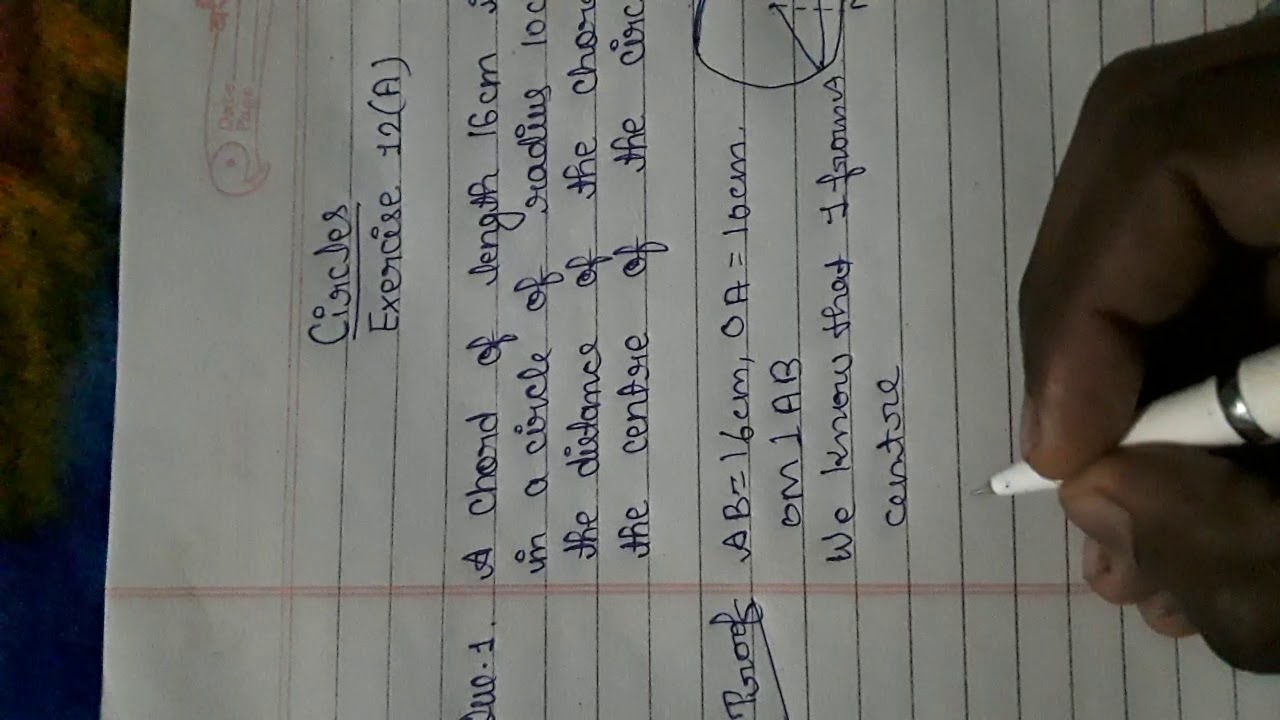 Date
Page
Circles
Exercise 12(A)
Que.1. A chord of length 16cm
in a circle of radius 10c
the distance of the chor
the centre of the circ
Proof AB=16cm, OA=10cm.
OM⊥AB
We know that ⊥ from
centre